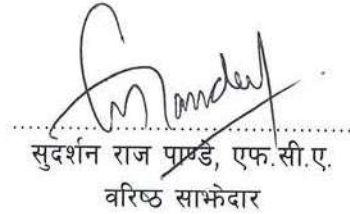 सुदर्शन राज पाण्डे, एफ.सी.ए.
वरिष्ठ साझेदार